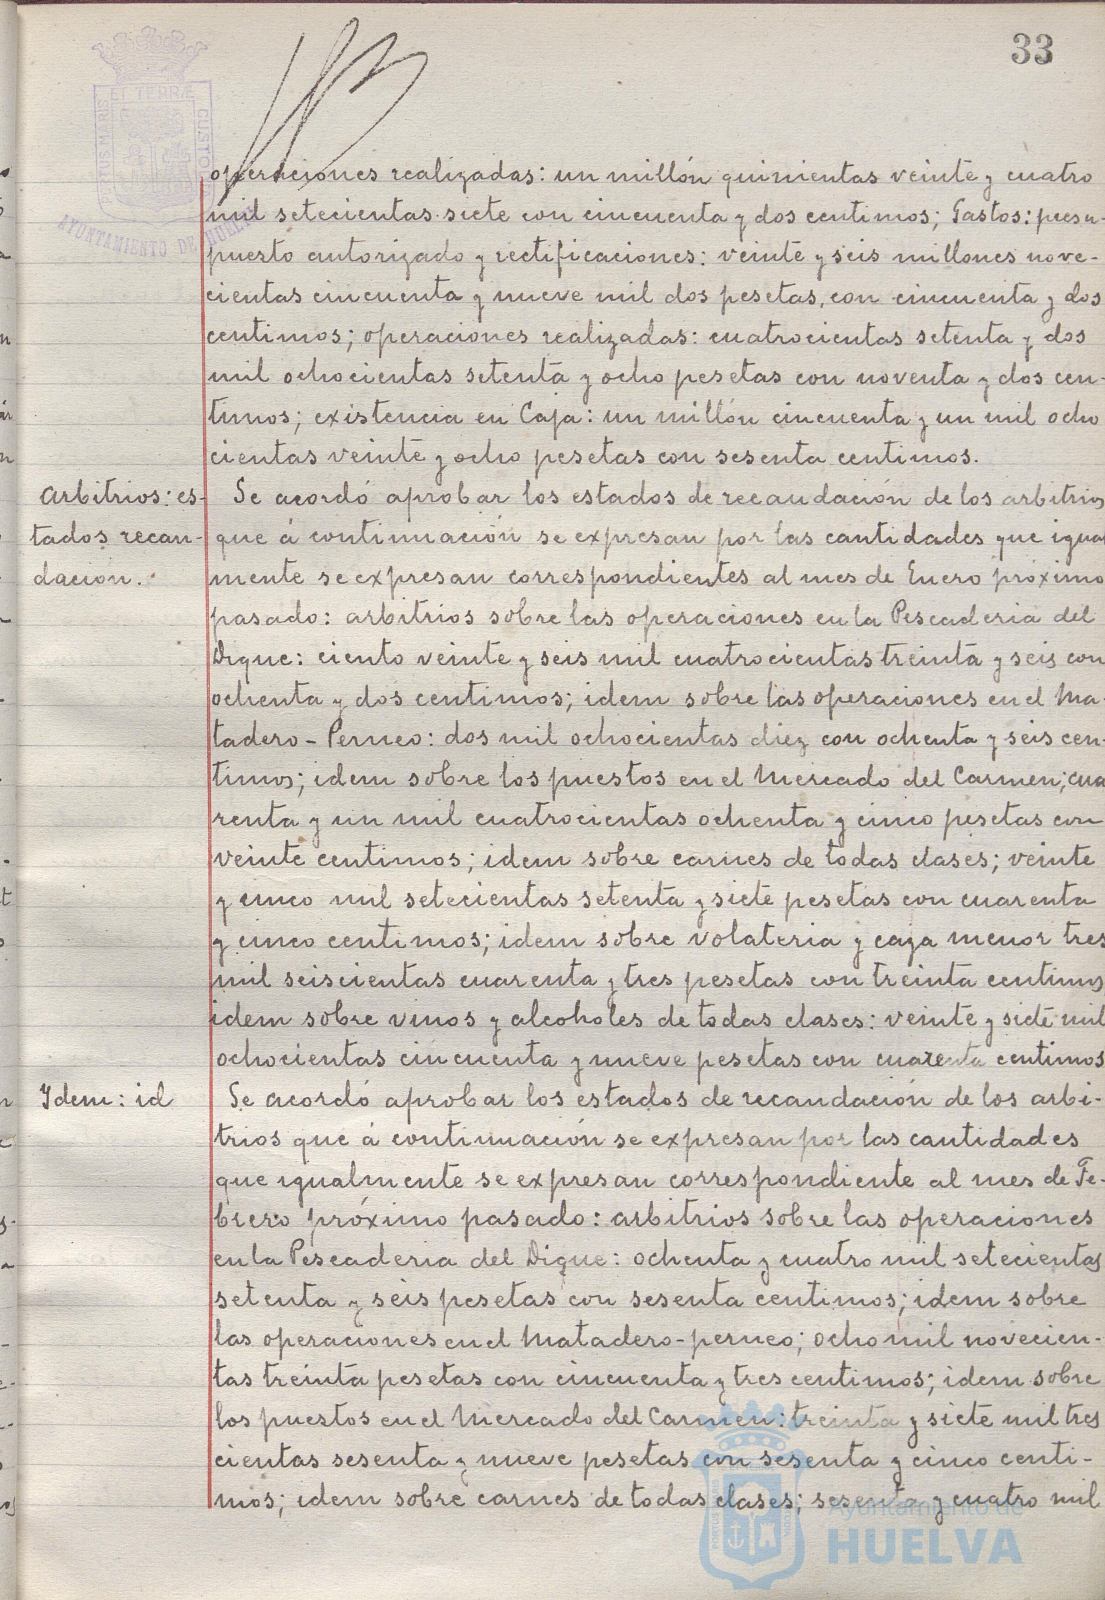 33
ET TERRÆ
PORTUS MARIS
CUSTO
AYUNTAMIENTO DE HUELVA
operaciones realizadas: un millón quinientas veinte y cuatro
mil setecientas siete con cincuenta y dos centimos; Gastos: presu-
puesto autorizado y rectificaciones: veinte y seis millones nove-
cientas cincuenta y nueve mil dos pesetas, con cincuenta y dos
centimos; operaciones realizadas: cuatrocientas setenta y dos
mil ochocientas setenta y ocho pesetas con noventa y dos cen-
timos; existencia en Caja: un millón cincuenta y un mil ocho
cientas veinte y ocho pesetas con sesenta centimos.
Arbitrios: es-
tados recau-
dación.
Se acordó aprobar los estados de recaudación de los arbitrios
que á continuación se expresan por las cantidades que igual
mente se expresan correspondientes al mes de Enero próximo
pasado: arbitrios sobre las operaciones en la Pescaderia del
Dique: ciento veinte y seis mil cuatrocientas treinta y seis con
ochenta y dos centimos; idem sobre las operaciones en el Ma-
tadero-Perneo: dos mil ochocientas diez con ochenta y seis cen-
timos; idem sobre los puestos en el Mercado del Carmen; cua
renta y un mil cuatrocientas ochenta y cinco pesetas con
veinte centimos; idem sobre carnes de todas clases; veinte
y cinco mil setecientas setenta y siete pesetas con cuarenta
y cinco centimos; idem sobre volateria y caza menor tres
mil seiscientas cuarenta y tres pesetas con treinta centimos
idem sobre vinos y alcoholes de todas clases: veinte y siete mil
ochocientas cincuenta y nueve pesetas con cuarenta centimos
Idem: id
Se acordó aprobar los estados de recaudación de los arbi-
trios que á continuación se expresan por las cantidades
que igualmente se expresan correspondiente al mes de Fe-
brero próximo pasado: arbitrios sobre las operaciones
en la Pescaderia del Dique: ochenta y cuatro mil setecientas
setenta y seis pesetas con sesenta centimos; idem sobre
las operaciones en el Matadero-perneo; ocho mil novecien-
tas treinta pesetas con cincuenta y tres centimos; idem sobre
los puestos en el Mercado del Carmen: treinta y siete mil tres
cientas sesenta y nueve pesetas con sesenta y cinco centi-
mos; idem sobre carnes de todas clases; sesenta y cuatro mil
Ayuntamiento de
HUELVA